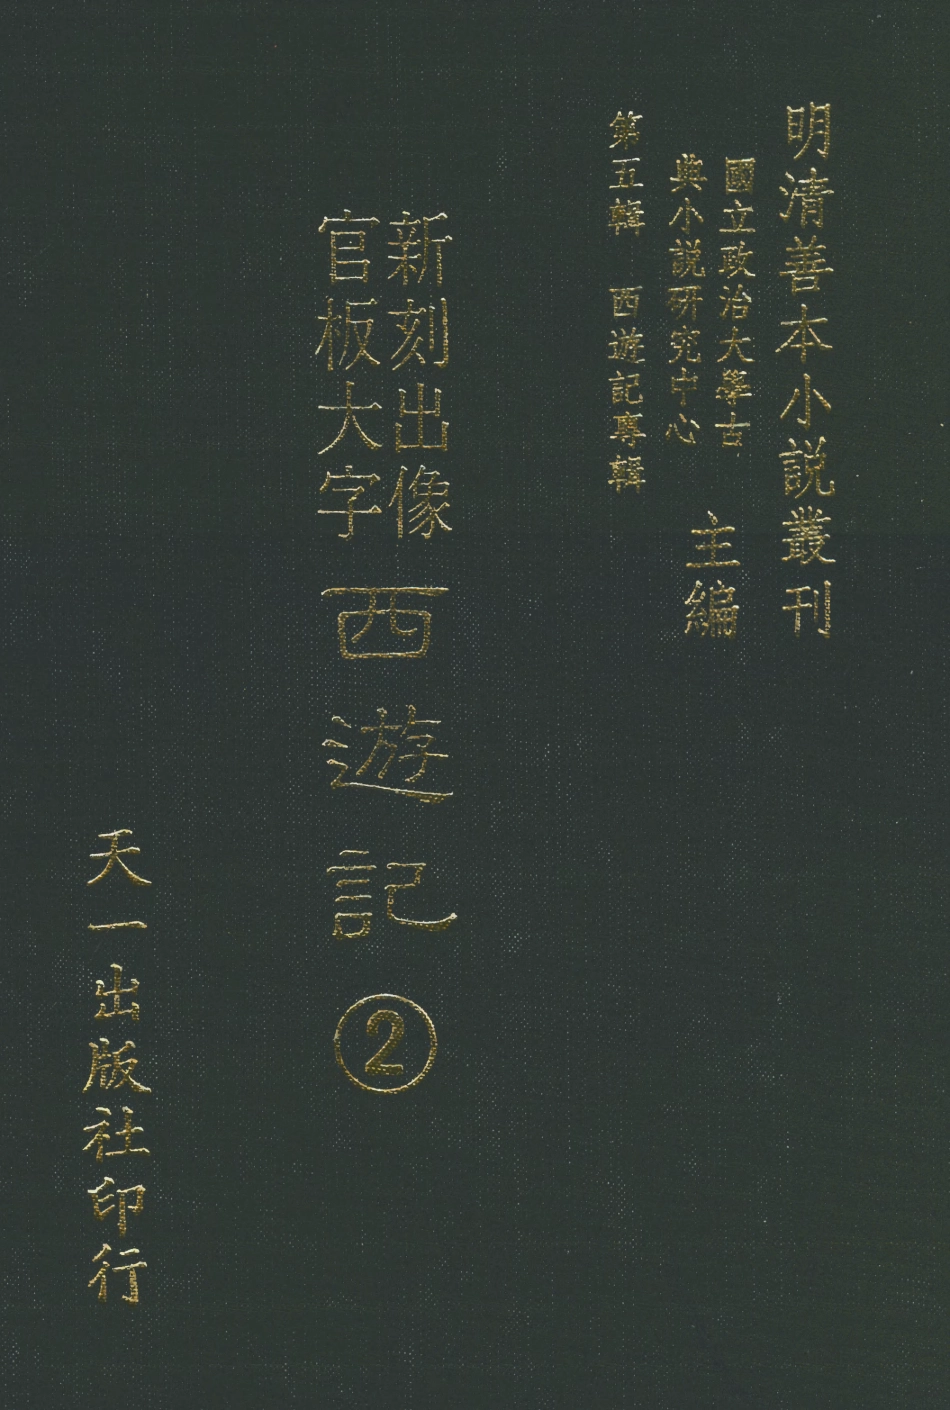 明清善本小説叢刊
國立政治大學古
典小説研究中心
主編
第五輯 西遊記專輯
新刻出像
官板大字
西遊記
②
天一出版社印行